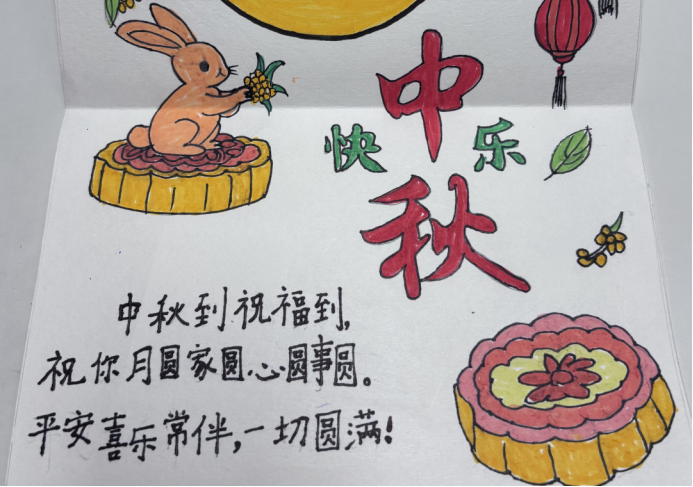 中秋
快乐
中秋到祝福到,
祝你月圆家圆心圆事圆。
平安喜乐常伴,一切圆满!